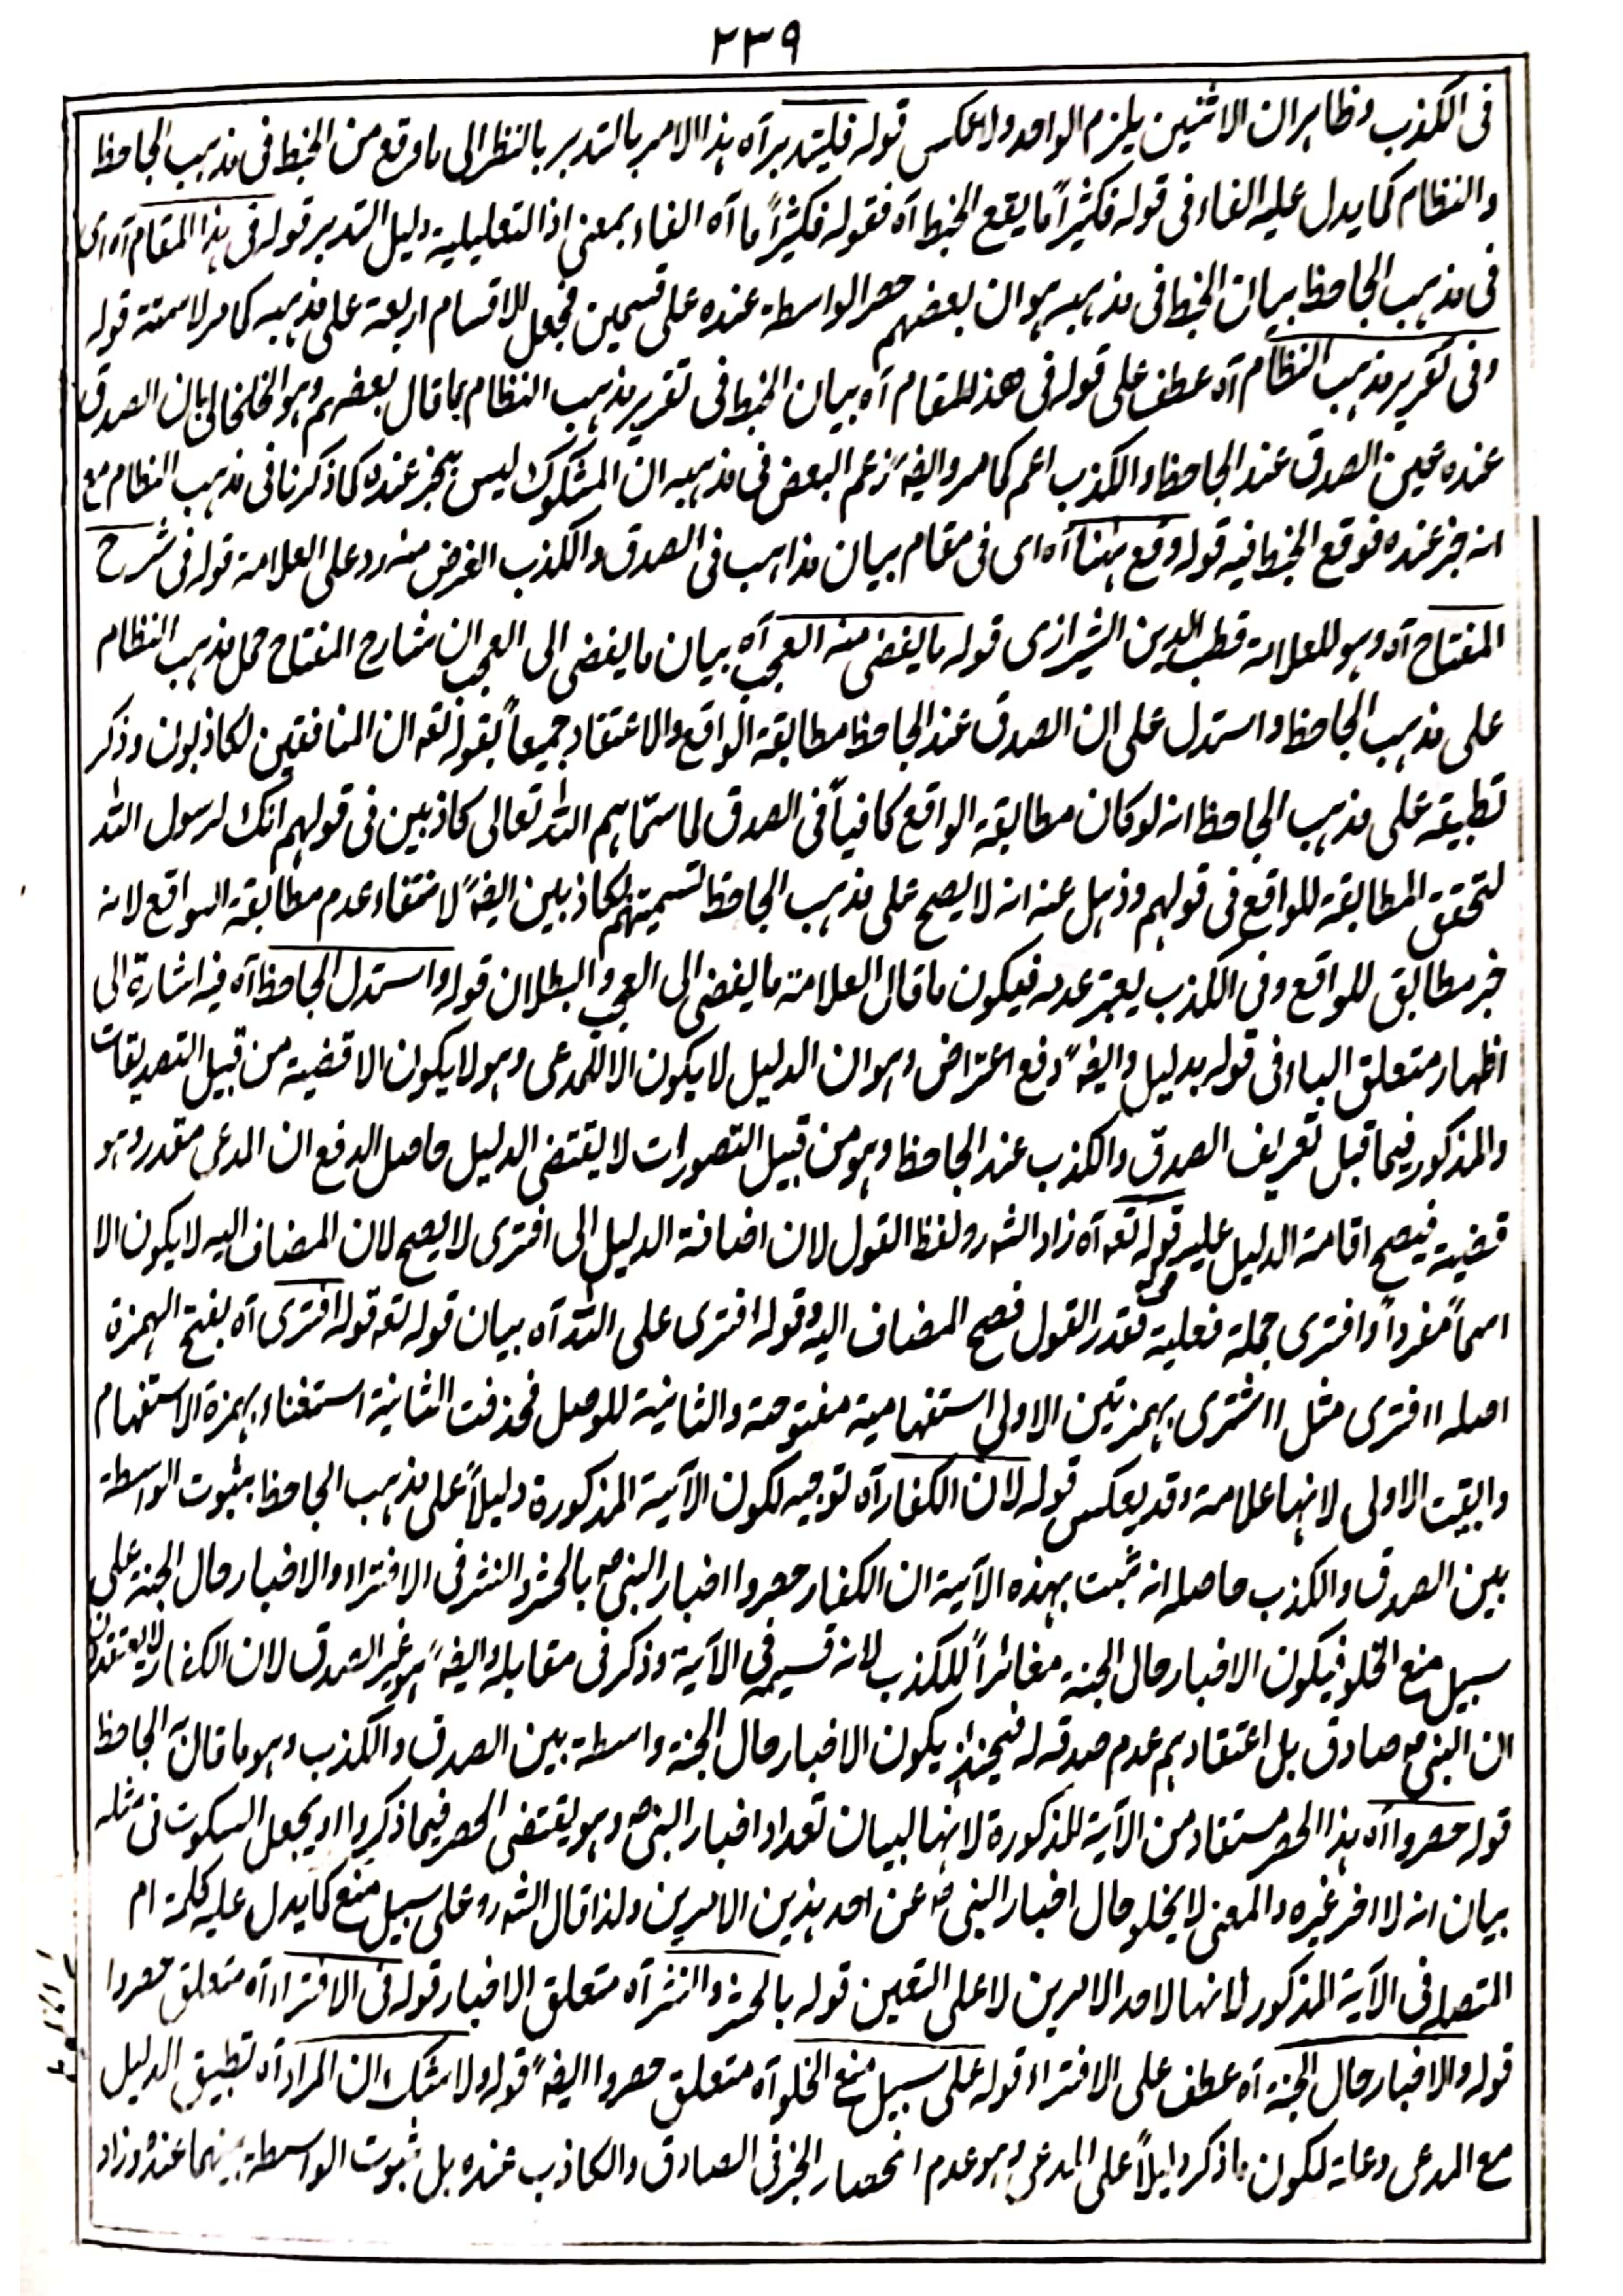 ٢٣٩
فى الكذب وظاهر ان الاثنين يلزم الواحد ولا عكس قوله فليتدبر آه هذا الامر بالتدبر بالنظر الى ما وقع من الخبط فى مذهب الجاحظ
والنظام كما يدل عليه الفاء فى قوله فكثيراً ما يقع الخبط آه فقوله فكثيراً ما آه الفاء بمعنى اذ التعليلية دليل التدبر قوله فى هذا المقام آه اى
فى مذهب الجاحظ بيان الخبط فى مذهبه هو ان بعضهم حصر الواسطة عنده على قسمين فجعل الاقسام اربعة على مذهبه كما مر لا ستة قوله
وفى تقرير مذهب النظام آه عطف على قوله فى هذا المقام آه بيان الخبط فى تقرير مذهب النظام بما قال بعضهم وهو الخلخالى بان الصدق
عنده عين الصدق عند الجاحظ والكذب اعم كما مر وايضاً زعم البعض فى مذهبه ان المشكوك ليس بخبر عنده كما ذكرنا فى مذهب النظام مع
انه خبر عنده فوقع الخبط فيه قوله وقع ههنا آه اى فى مقام بيان مذاهب فى الصدق والكذب الغرض منه رد على العلامة قوله فى شرح
المفتاح آه وهو للعلامة قطب الدين الشيرازى قوله ما يقضى منه العجب آه بيان ما يفضى الى العجب ان شارح المفتاح حمل مذهب النظام
على مذهب الجاحظ واستدل على ان الصدق عند الجاحظ مطابقة الواقع والاعتقاد جميعاً بقوله تعه ان المنافقين لكاذبون وذكر
تطبيقه على مذهب الجاحظ انه لو كان مطابقة الواقع كافياً فى الصدق لما سماهم الله تعالى كاذبين فى قولهم انك لرسول الله
لتحقق المطابقة للواقع فى قولهم وذهل عنه انه لا يصح على مذهب الجاحظ تسميتهم لكاذبين ايضاً لانتفاء عدم مطابقة الواقع لانه
خبر مطابق للواقع وفى الكذب يعتبر عدمه فيكون ما قال العلامة ما يفضى الى العجب والبطلان قوله واستدل الجاحظ آه فيه اشارة الى
اظهار متعلق الباء فى قوله بدليل وايضاً دفع اعتراض وهو ان الدليل لا يكون الا للمدعى وهو لا يكون الا قضية من قبيل التصديقات
والمذكور فيما قبل تعريف الصدق والكذب عند الجاحظ وهو من قبيل التصورات لا يقتضى الدليل حاصل الدفع ان المدعى مقدر وهو
قضية فيصح اقامة الدليل عليه قوله قوله تعه آه زاد الشه رو لفظ القول لان اضافة الدليل الى افترى لا يصح لان المضاف اليه لا يكون الا
اسماً مفرداً وافترى جملة فعلية فقدر القول فصح المضاف اليه وقوله افترى على الله آه بيان قوله تعه قوله افترى آه بفتح الهمزة
اصله اافترى مثل ااشترى بهمزتين الاولى استفهامية مفتوحة والثانية للوصل فحذفت الثانية استغناء بهمزة الاستفهام
وابقيت الاولى لانها علامة وقد يعكس قوله لان الكفار آه توجيه لكون الآية المذكورة دليلاً على مذهب الجاحظ بثبوت الواسطة
بين الصدق والكذب حاصله انه ثبت بهذه الآية ان الكفار حصروا اخبار النبى ص بالحشر والنشر فى الافتراء والاخبار حال الجنة على
سبيل منع الخلو فيكون الاخبار حال الجنة مغائراً للكذب لانه قسيمه فى الآية وذكر فى مقابله وايضاً هو غير الصدق لان الكفار لا يعتقدون
ان النبى ص صادق بل اعتقادهم عدم صدقه له فحينئذ يكون الاخبار حال الجنة واسطة بين الصدق والكذب وهو ما قاله الجاحظ
قوله حصروا آه هذا الحصر مستفاد من الآية المذكورة لانها لبيان تعداد اخبار النبى ص وهو يقتضى الحصر فيما ذكروا او يجعل السكوت فى مثله
بيان انه لا اخر غيره والمعنى لا يخلو حال اخبار النبى ص عن احد هذين الامرين ولذا قال الشه رو على سبيل منع كما يدل عليه كلمة ام
المتصلة فى الآية المذكور لانها لاحد الامرين لا على التعين قوله بالحشر والنشر آه متعلق الاخبار قوله فى الافتراء آه متعلق حصروا
قوله والاخبار حال الجنة آه عطف على الافتراء قوله على سبيل منع الخلو آه متعلق حصروا ايضاً قوله ولا شك ان المراد آه تطبيق الدليل
مع المدعى وعلة لكون ما ذكر دليلاً على المدعى وهو عدم انحصار الخبر فى الصادق والكاذب عنده بل ثبوت الواسطة بينهما عنده وزاد